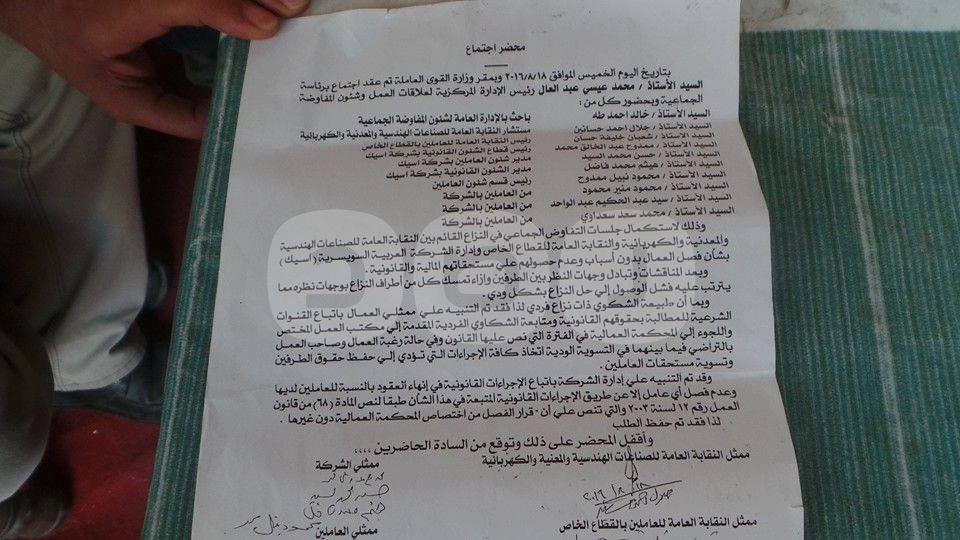 محضر اجتماع
بتاريخ اليوم الخميس الموافق ٢٠١٦/٨/١٨ وبمقر وزارة القوى العاملة تم عقد اجتماع برئاسة
السيد الأستاذ / محمد عيسي عبد العال رئيس الإدارة المركزية لعلاقات العمل وشئون المفاوضة
الجماعية وبحضور كل من :
السيد الأستاذ / خالد احمد طه باحث بالإدارة العامة لشئون المفاوضة الجماعية
السيد الأستاذ / جلال احمد حسانين مستشار النقابة العامة للصناعات الهندسية والمعدنية والكهربائية
السيد الأستاذ / شعبان خليفة حسن رئيس النقابة العامة للعاملين بالقطاع الخاص
السيد الأستاذ / ممدوح عبد الخالق محمد رئيس قطاع الشئون القانونية بشركة اسيك
السيد الأستاذ / حسن محمد السيد مدير شئون العاملين بشركة اسيك
السيد الأستاذ / هيثم محمد فاضل مدير الشئون القانونية بشركة اسيك
السيد الأستاذ / محمود نبيل ممدوح رئيس قسم شئون العاملين
السيد الأستاذ / محمود منير محمود من العاملين بالشركة
السيد الأستاذ / سيد عبد الحكيم عبد الواحد من العاملين بالشركة
السيد الأستاذ / محمد سعد سعداوي من العاملين بالشركة
وذلك لاستكمال جلسات التفاوض الجماعي في النزاع القائم بين النقابة العامة للصناعات الهندسية
والمعدنية والكهربائية والنقابة العامة للقطاع الخاص وإدارة الشركة العربية السويسرية (اسيك)
بشأن فصل العمال بدون أسباب وعدم حصولهم علي مستحقاتهم المالية والقانونية .
وبعد المناقشات وتبادل وجهات النظر بين الطرفين وإزاء تمسك كل من أطراف النزاع بوجهات نظره مما
يترتب عليه فشل الوصول إلي حل النزاع بشكل ودي .
وبما أن طبيعة الشكوي ذات نزاع فردي لذا فقد تم التنبيه علي ممثلي العمال باتباع القنوات
الشرعية للمطالبة بحقوقهم القانونية ومتابعة الشكاوي الفردية المقدمة إلي مكتب العمل المختص
واللجوء إلي المحكمة العمالية في الفترة التي نص عليها القانون وفي حالة رغبة العمال وصاحب العمل
بالتراضي فيما بينهما في التسوية الودية اتخاذ كافة الإجراءات التي تؤدي إلي حفظ حقوق الطرفين
وتسوية مستحقات العاملين .
وقد تم التنبيه علي إدارة الشركة باتباع الإجراءات القانونية في إنهاء العقود بالنسبة للعاملين لديها
وعدم فصل أي عامل إلا عن طريق الإجراءات القانونية المتبعة في هذا الشأن طبقا لنص المادة (٦٨) من قانون
العمل رقم ١٢ لسنة ٢٠٠٣ والتي تنص علي أن - قرار الفصل من اختصاص المحكمة العمالية دون غيرها .
لذا فقد تم حفظ الطلب
وأقفل المحضر على ذلك وتوقع من السادة الحاضرين ،،،،
ممثل النقابة العامة للصناعات الهندسية والمعنية والكهربائية ممثلي الشركة
٢٠١٦/٨/١٨
ممثل النقابة العامة للعاملين بالقطاع الخاص ممثلي العاملين